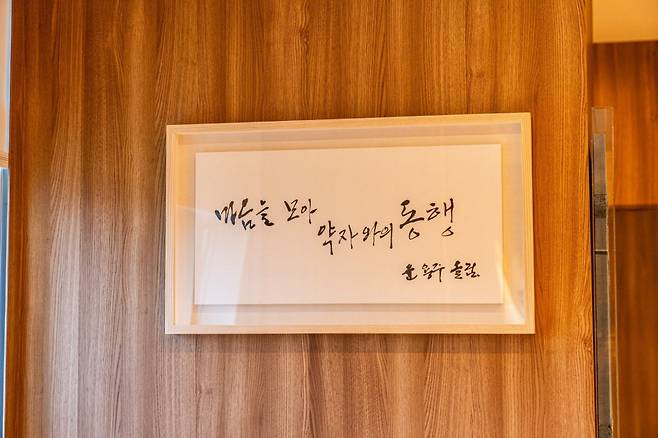 마음을 모아
약자와의 동행
윤 송주 올림